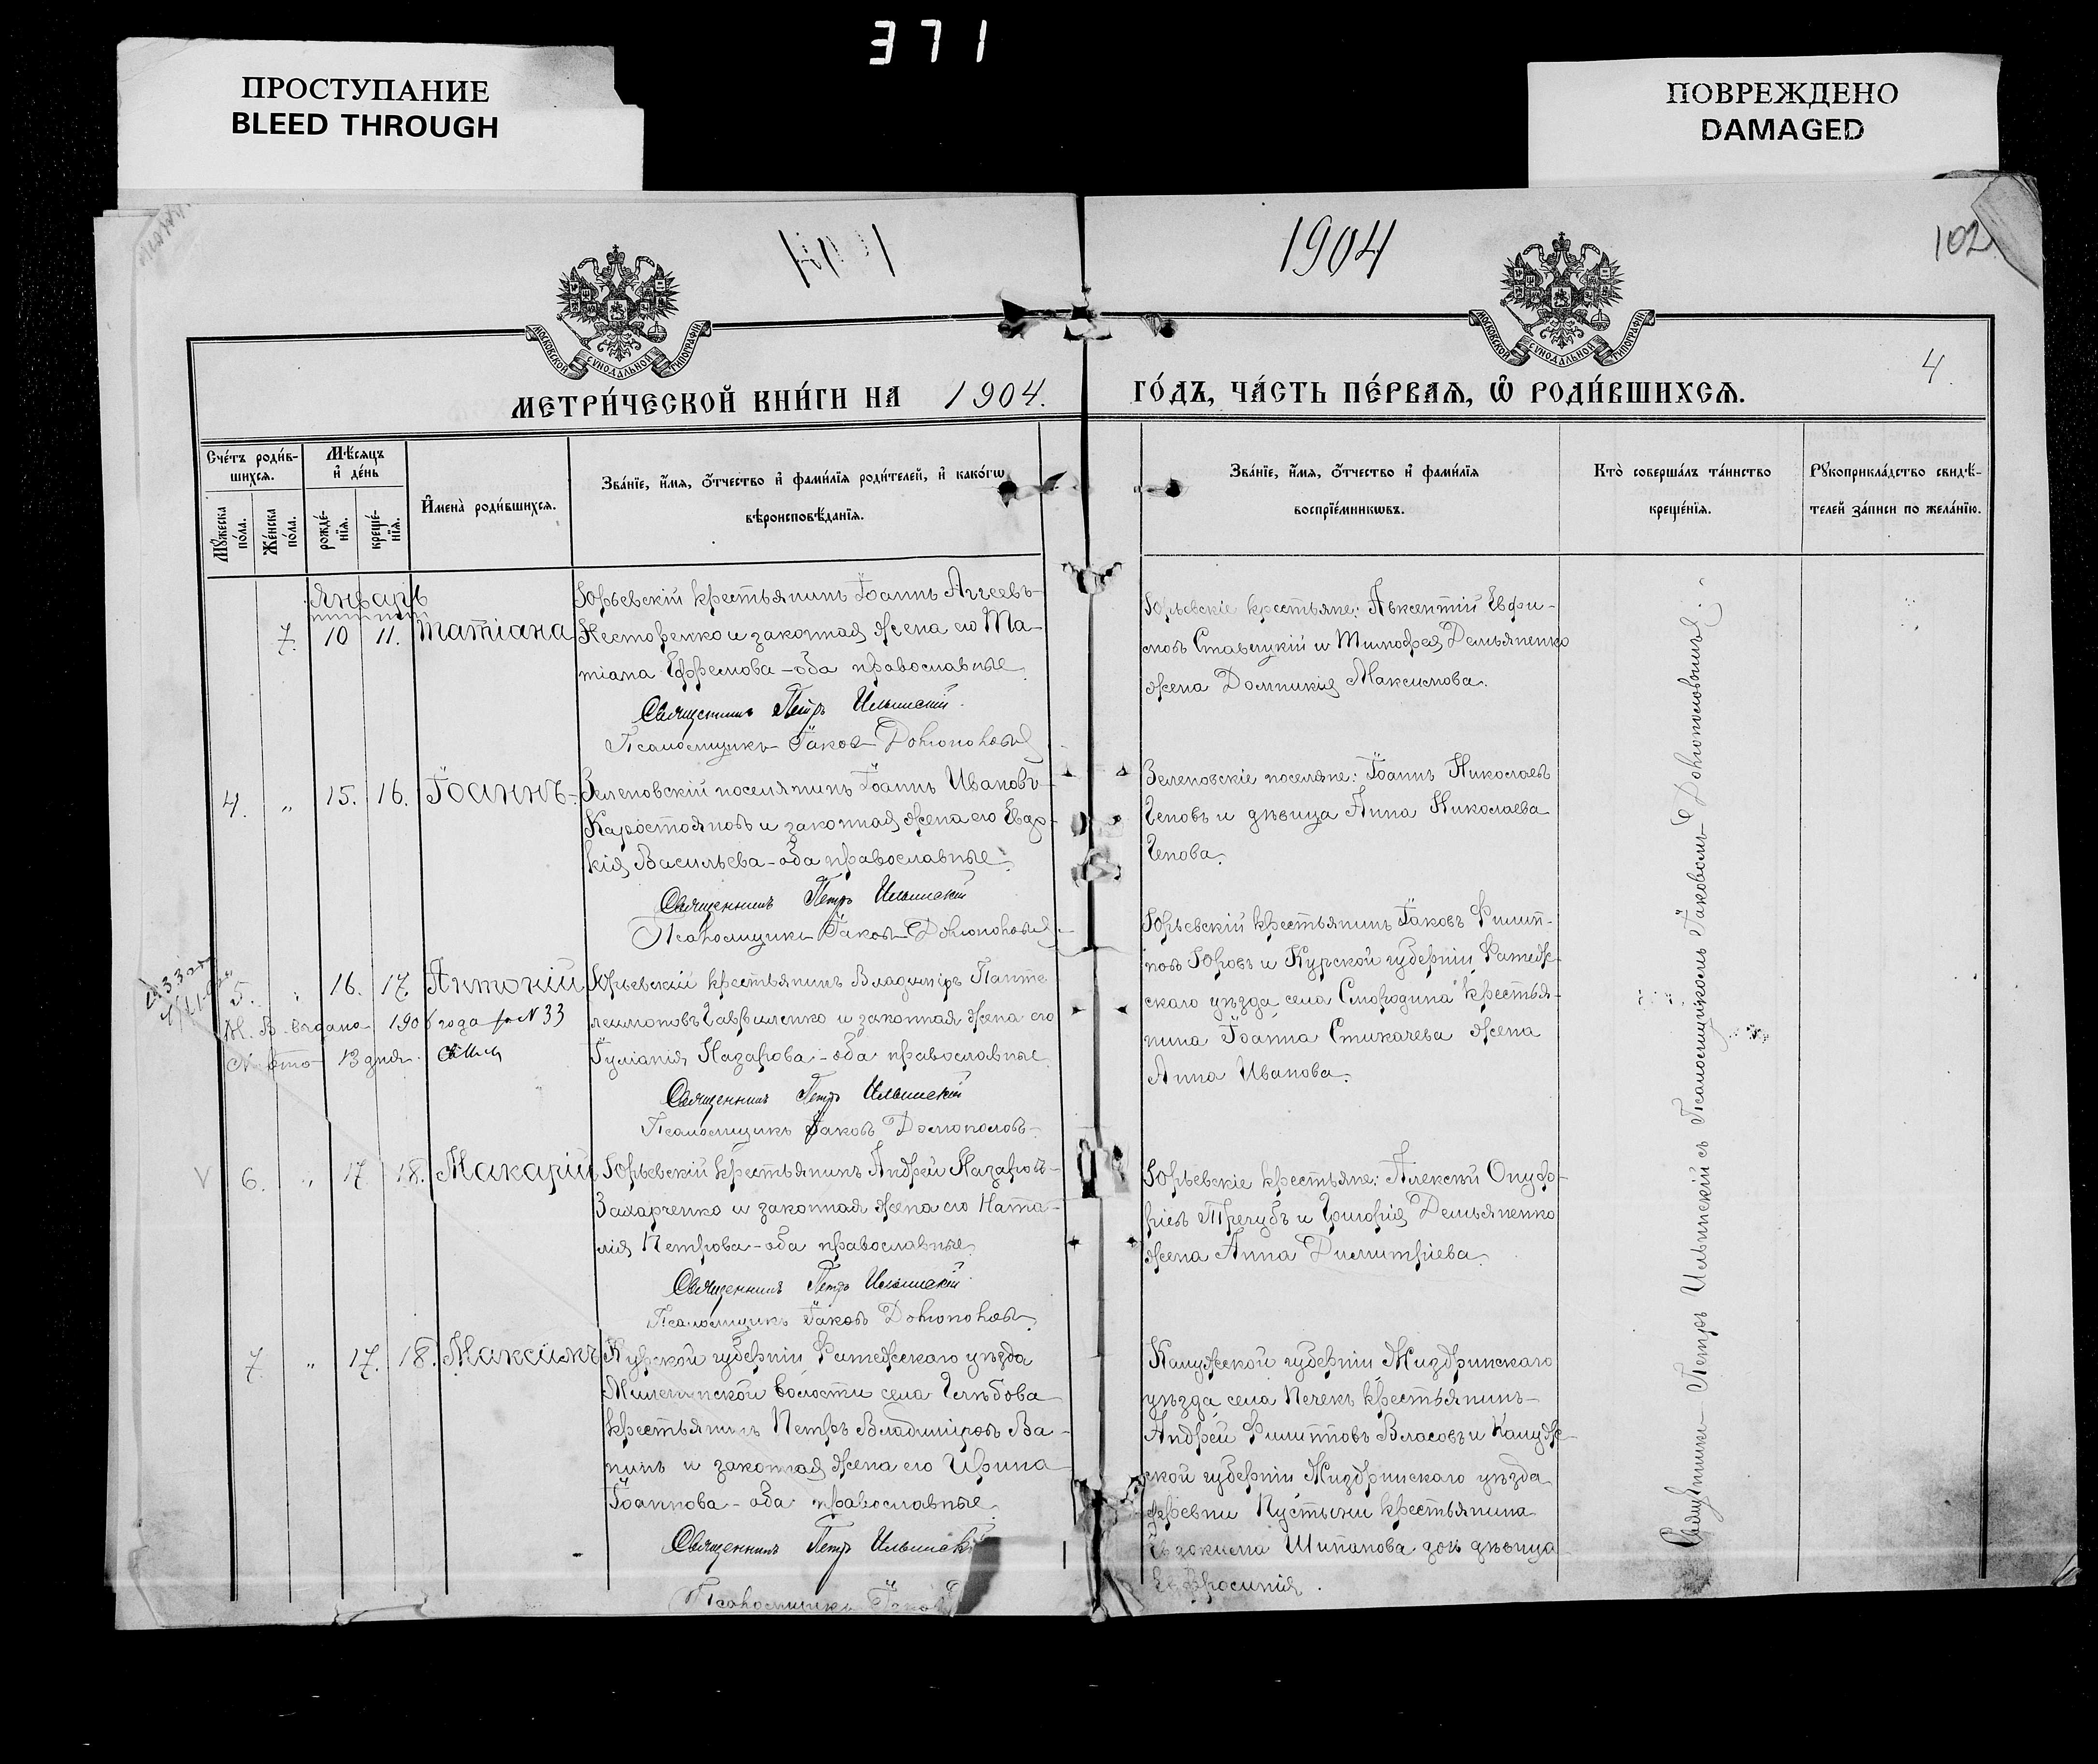 371
ПРОСТУПАНИЕ
BLEED THROUGH
ПОВРЕЖДЕНО
DAMAGED
1904
102
МОСКОВСКОЙ СѴНОДАЛЬНОЙ ТИПОГРАФІИ
МОСКОВСКОЙ СѴНОДАЛЬНОЙ ТИПОГРАФІИ
4.
МЕТРИ́ЧЕСКОЙ КНИ́ГИ НА 1904. ГО́ДЪ, ЧА́СТЬ ПЕ́РВАѦ, Ѽ РОДИ́ВШИХСѦ.
Сче́тъ роди́в-
шихся.
Мꙋ́жеска по́ла.
Же́нска по́ла.
Мѣ́сяцъ
и҆ де́нь
рожде́-
нїя.
креще́-
нїя.
И҆мена̀ роди́вшихся.
Зва́нїе, и҆́мя, ѻ҆́тчество и҆ фами́лїя роди́телей, и҆ како́гѡ
вѣроисповѣ́данїя.
Зва́нїе, и҆́мя, ѻ҆́тчество и҆ фами́лїя
воспрїе́мникѡвъ.
Кто̀ соверша́лъ та́инство
креще́нїя.
Рꙋкоприкла́дство свидѣ́-
телей за́писи по жела́нїю.
Январь
7. 10 11. Татіана
Юрьевскій крестьянинъ Іоаннъ Аггеевъ
Несторенко и законная жена его Та-
тіана Ефремова - оба православные.
Священникъ Петръ Ильинскій
Псаломщикъ Іаковъ
Юрьевскіе крестьяне: Авксентій Евфи-
мовъ Ставицкій и Тимофея Демьяненко
жена Домникія Максимова.
4. " 15. 16. Іоаннъ
Зеленовскій поселянинъ Іоаннъ Ивановъ
Каростояновъ и законная жена его Евдо-
кія Васильева - оба православные.
Священникъ Петръ Ильинскій
Псаломщикъ Іаковъ
Зеленовскіе поселяне: Іоаннъ Николаевъ
Геновъ и дѣвица Анна Николаева
Генова.
5. " 16. 17. Антоній
М. В. выдано 1906 года за N 33
13 дня.
Юрьевскій крестьянинъ Владиміръ Панте-
леимоновъ Гавриленко и законная жена его
Іуліанія Назарова - оба православные.
Священникъ Петръ Ильинскій
Псаломщикъ Іаковъ
Юрьевскій крестьянинъ Іаковъ Филип-
повъ Юровъ и Курской губерніи Фатеж-
скаго уѣзда села Смородина крестья-
нина Іоанна Стикачева жена
Анна Иванова.
V 6. " 17 18. Макарій
Юрьевскій крестьянинъ Андрей Назаровъ
Захарченко и законная жена его Ната-
лія Петрова - оба православные.
Священникъ Петръ Ильинскій
Псаломщикъ Іаковъ
Юрьевскіе крестьяне: Алексѣй Онуф-
ріевъ Трегубъ и Григорія Демьяненко
жена Анна Димитріева.
7. " 17. 18. Максимъ
Курской губерніи Фатежскаго уѣзда
волости села Глѣбова
крестьянинъ Петръ Владиміровъ Ва-
нинъ и законная жена его Ирина
Іоаннова - оба православные.
Священникъ Петръ Ильинскій
Псаломщикъ Іаковъ
Калужской губерніи Жиздринскаго
уѣзда села Печекъ крестьянинъ
Андрей Филипповъ Власовъ и Калуж-
ской губерніи Жиздринскаго уѣзда
деревни Пустыни крестьянина
Евдокима Шипанова дочь дѣвица
Евфросинія.
Священникъ Петръ Ильинскій съ Псаломщикомъ Іаковомъ